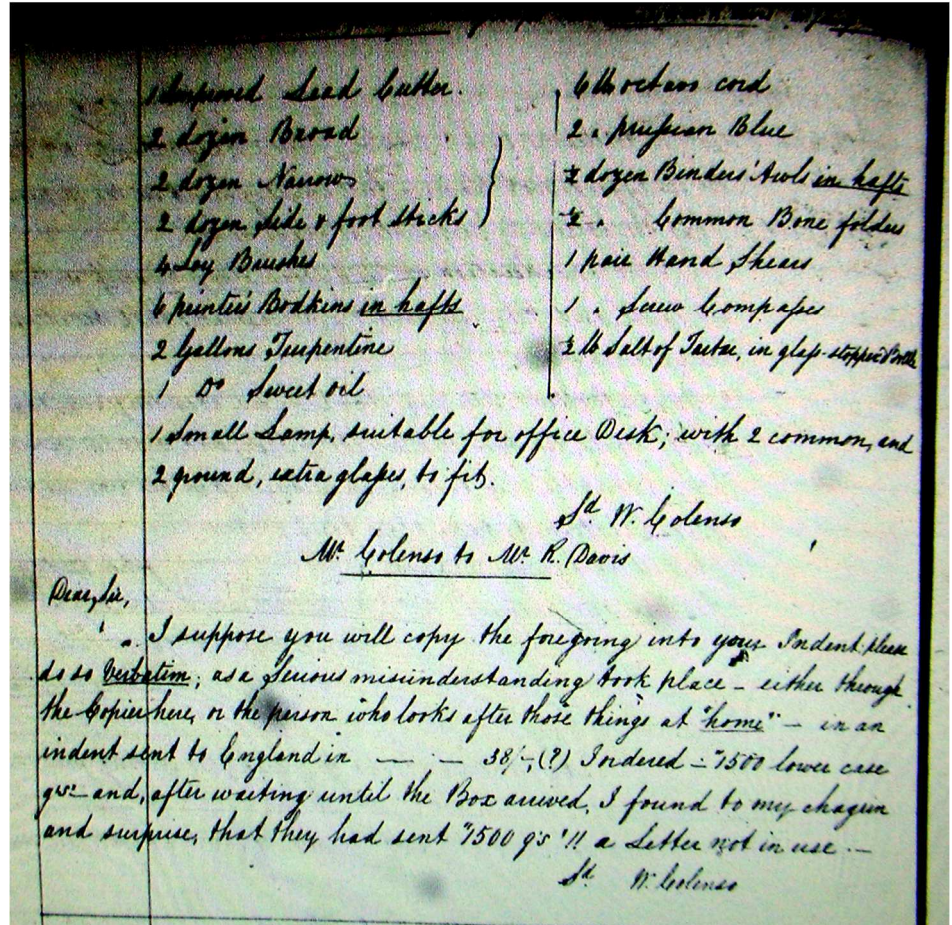 1 Improved Lead Cutter.
2 dozen Broad
2 dozen Narrow
2 dozen Side & foot sticks
4 Ley Brushes
6 printer's Bodkins in hafts
2 Gallons Turpentine
1 Do Sweet oil
6 lb octavo cord
2 " prussian Blue
½ dozen Binders' Awls in hafts
½ " Common Bone folders
1 pair Hand Shears
1 " Screw Compasses
½ lb Salt of Tartar, in glass-stopper'd bottle
1 Small Lamp, suitable for office Desk; with 2 common, and
2 ground, extra glasses, to fit.
Sd. W. Colenso
Mr Colenso to Mr R. Davis
Dear Sir,
I suppose you will copy the foregoing into your Indent: please
do so verbatim; as a serious misunderstanding took place – either through
the Copier here, or the person who looks after those things at "home" – in an
indent sent to England in — — 38/-, (?) I ordered – "1500 lower case
g's" – and, after waiting until the Box arrived, I found to my chagrin
and surprise, that they had sent "1500 9's"!! a Letter not in use. —
Sd. W. Colenso